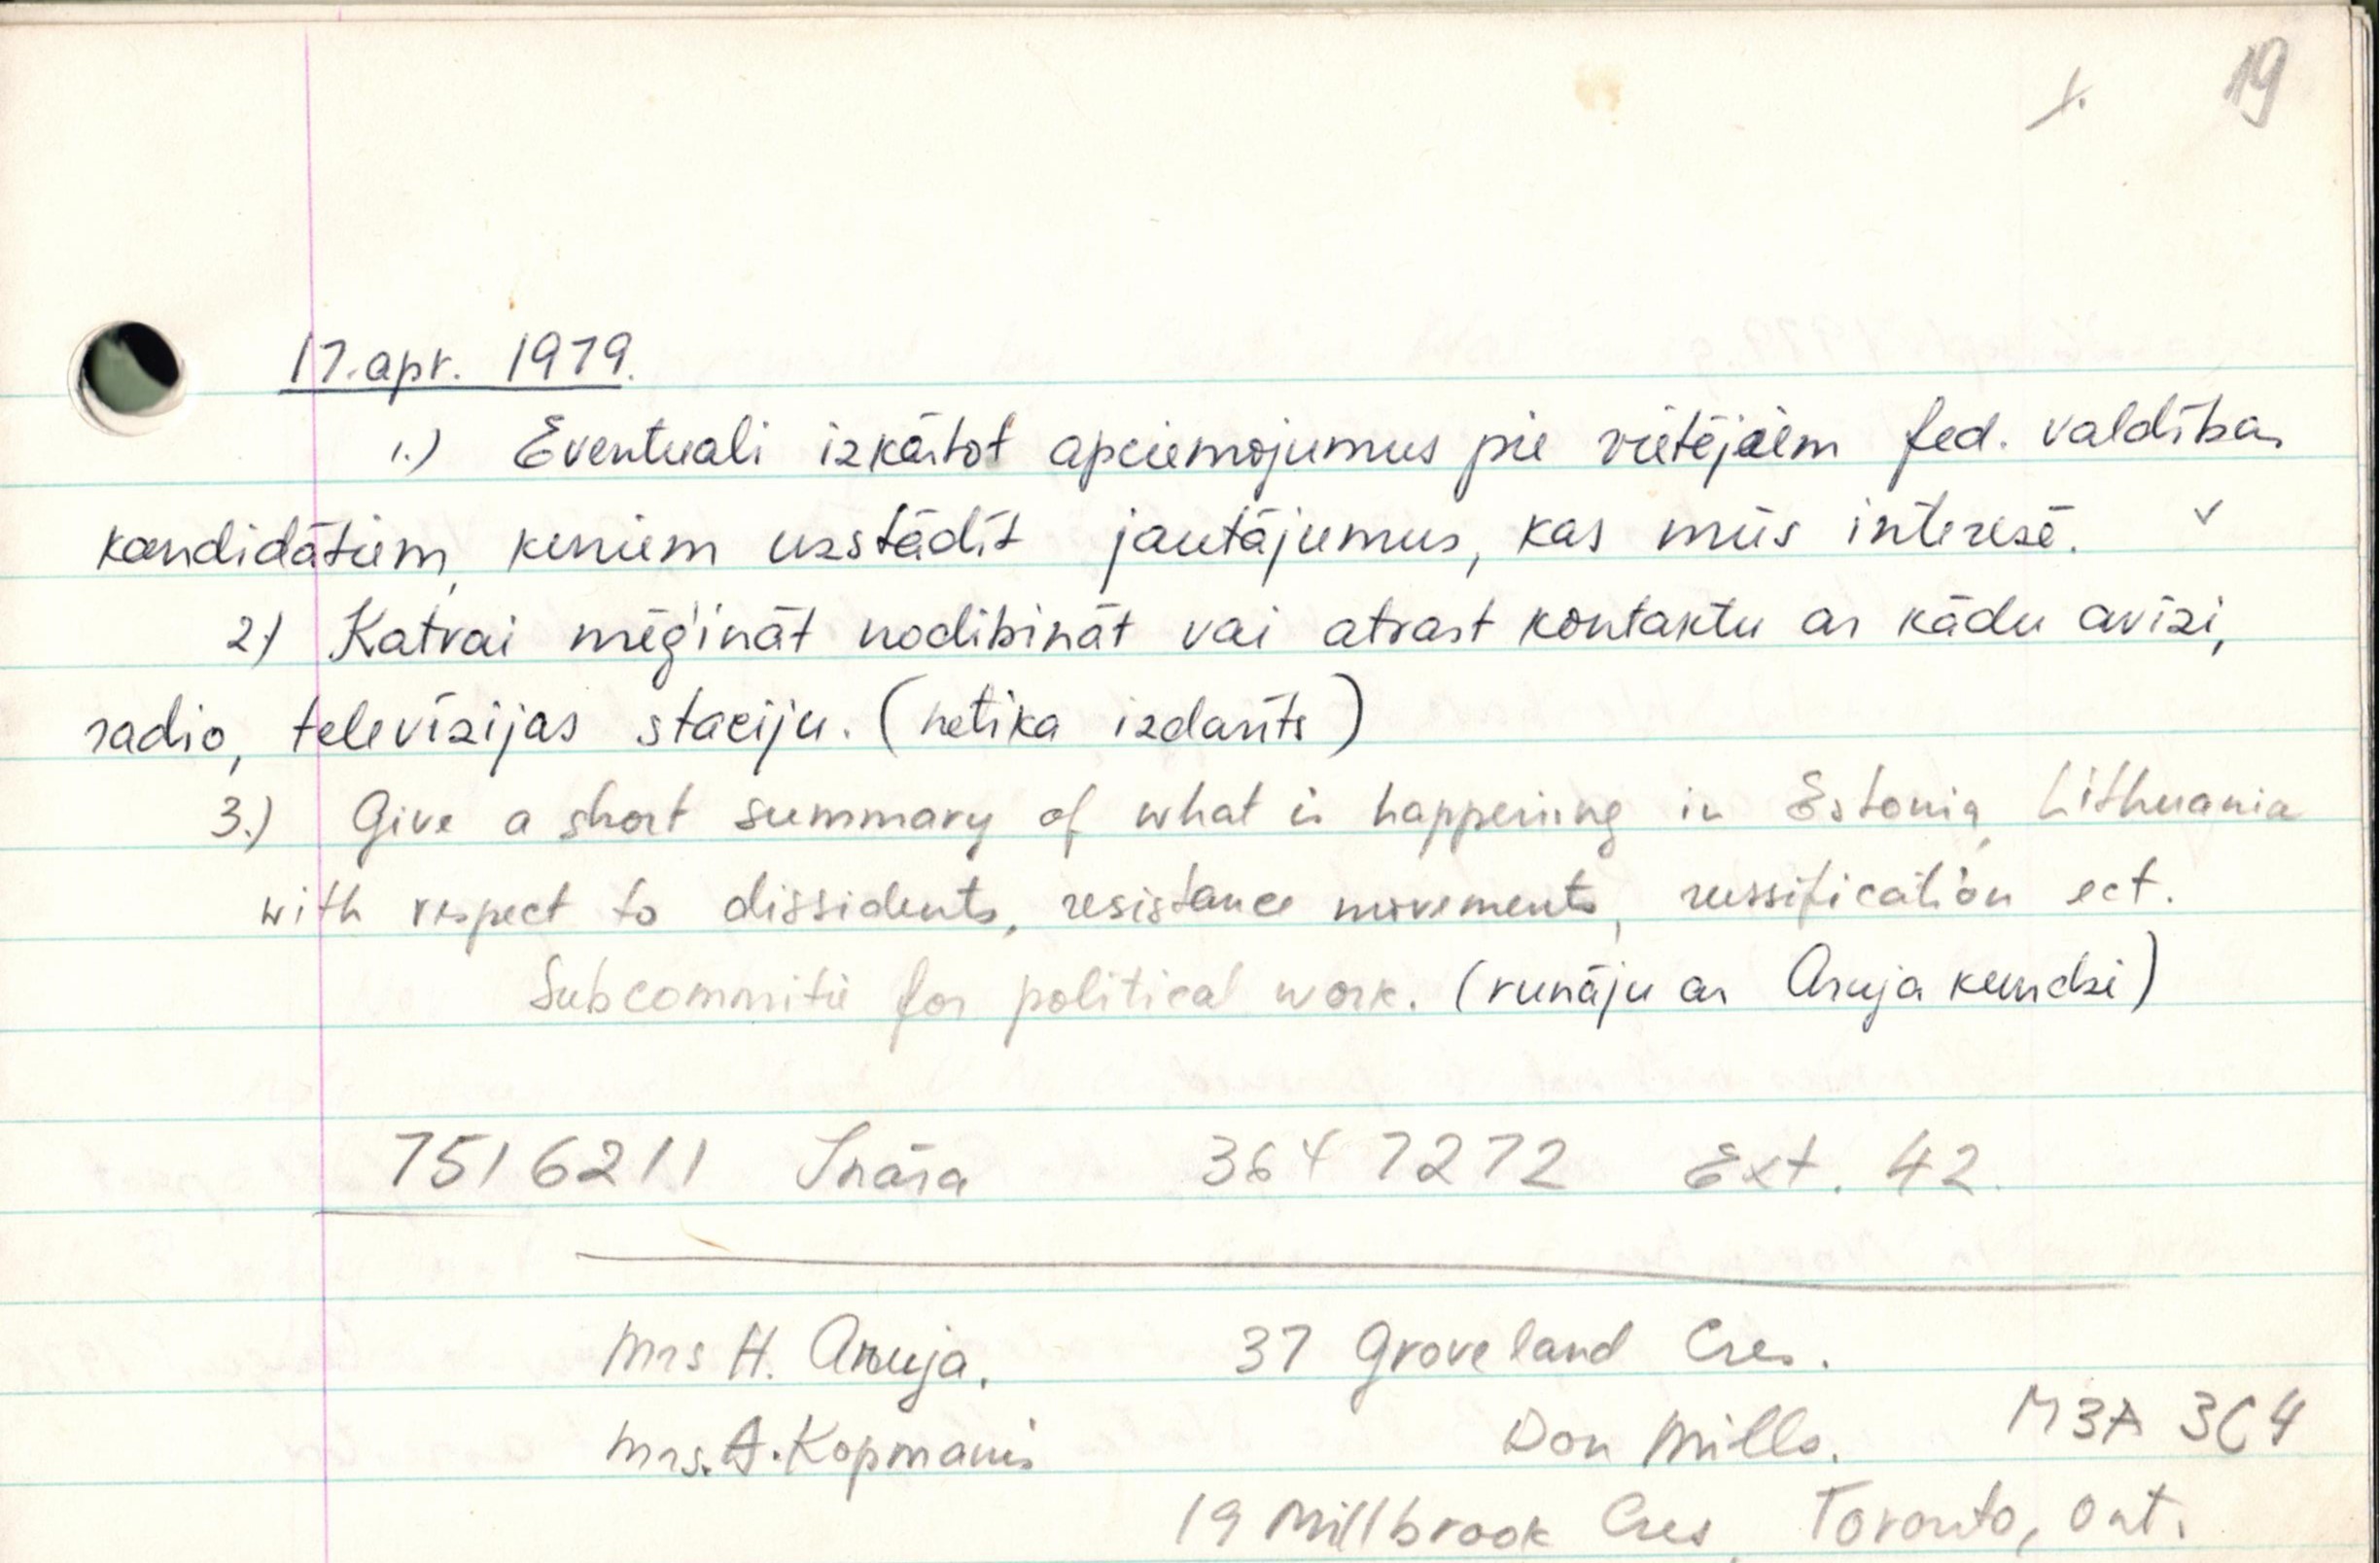 19
17. apr. 1979.
1.) Eventuali izkārtot apciemojumus pie vietējiem fed. valdības
kandidātiem, kuriem uzstādīt jautājumus, kas mūs interesē. ✓
2) Katrai mēģināt nodibināt vai atrast kontaktu ar kādu avīzi,
radio, televīzijas staciju. (netika izdarīts)
3.) Give a short summary of what is happening in Estonia, Lithuania
with respect to dissidents, resistance movements, russification ect.
Subcommitie for political work. (runāju ar Aruja kundzi)
7516211 Ināra 364 7272 Ext. 42.
Mrs H. Aruja. 37 Groveland Cres.
Don Mills. M3A 3C4
Mrs. A. Kopmanis
19 Millbrook Cres, Toronto, Ont.